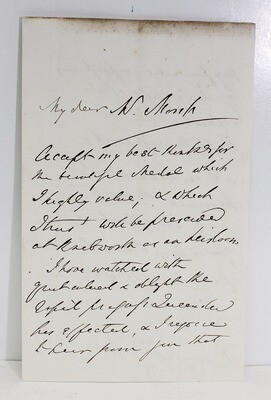 My dear Mr. Morris
Accept my best thanks for
the beautiful Medal which
I highly value, & which
I trust will be preserved
at Knebworth as an heirloom
I have watched with
great interest & delight the
rapid progress Queensland
has effected, & I rejoice
to hear from you that